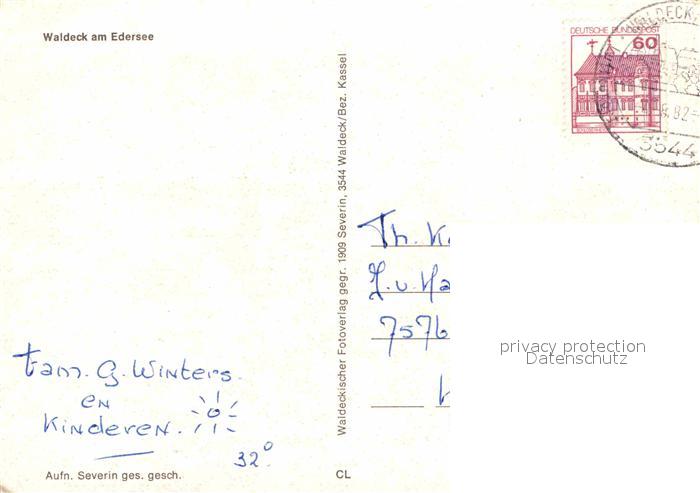 Waldeck am Edersee
DEUTSCHE BUNDESPOST
60
WALDECK
.82-
3544
Waldeckischer Fotoverlag gegr. 1909 Severin, 3544 Waldeck/Bez. Kassel
Th. K
7576
privacy protection
Datenschutz
Fam. G. Winters.
en
Kinderen.
32°
Aufn. Severin ges. gesch.
CL